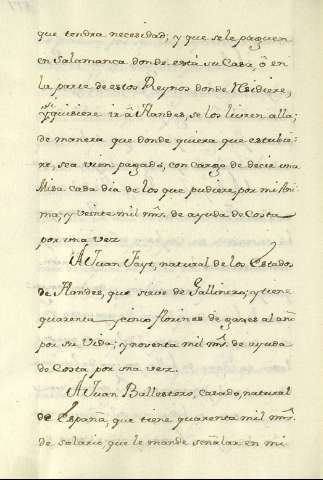 que tendra necesidad; y que se le paguen
en Salamanca donde está su Casa, ó en
la parte de estos Reynos donde residiere,
y si quisiere ir á Flandes, se los libren alla;
de manera que donde quiera que estubie-
re, sea vien pagado, con cargo de decir una
Misa cada dia de los que pudiere, por mi Ani-
ma; y veinte mil mrs. de ayuda de Costa
por una vez
A Juan Fayt, natural de los Estados
de Flandes, que sirve de Gallinero, y tiene
quarenta y cinco florines de gages al año
por su Vida; y noventa mil mrs. de ayuda
de Costa por una vez.
A Juan Ballestero, casado, natural
de España, que tiene quarenta mil mrs.
de salario, que le mande señalar en mi